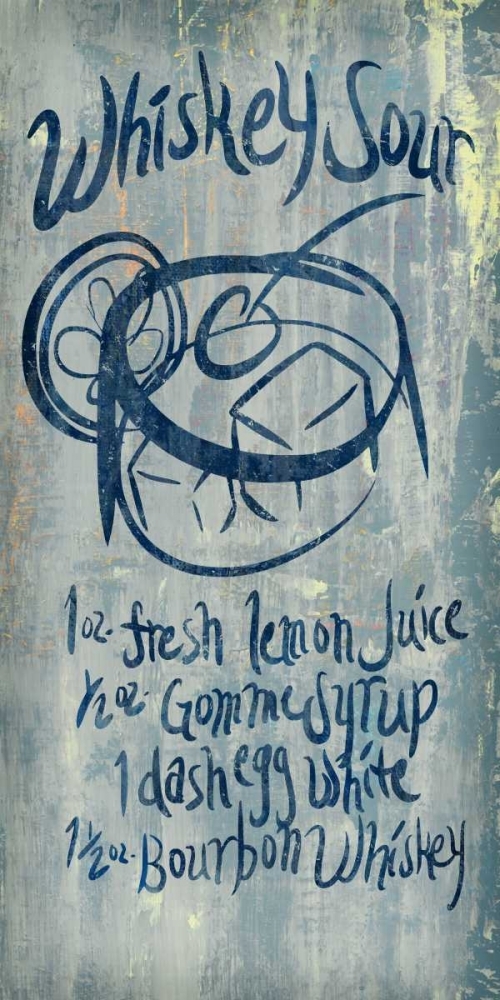 Whiskey Sour
1 oz. fresh lemon Juice
1/2 oz. Gomme Syrup
1 dash egg White
1 1/2 oz. Bourbon Whiskey